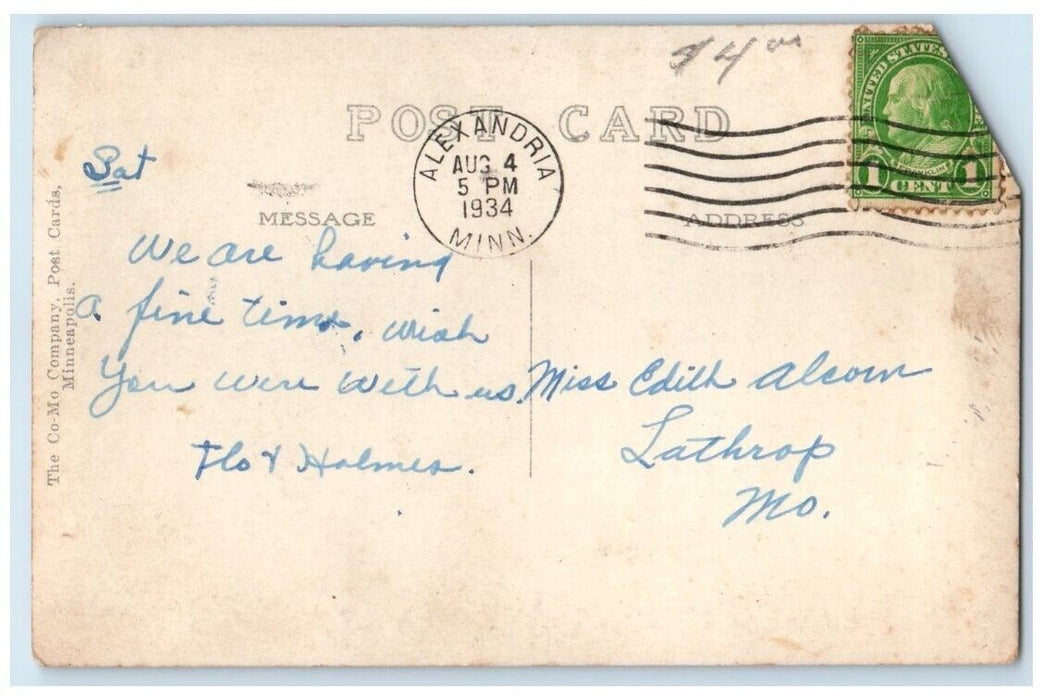 $4 00
POST CARD
ALEXANDRIA
AUG 4
5 PM
1934
MINN.
UNITED STATES
FRANKLIN
1 CENT 1
Sat
MESSAGE
ADDRESS
We are having
a fine time, wish
You were with us.
Flo & Holmes.
Miss Edith Alcorn
Lathrop
Mo.
The Co-Mo Company, Post Cards,
Minneapolis.